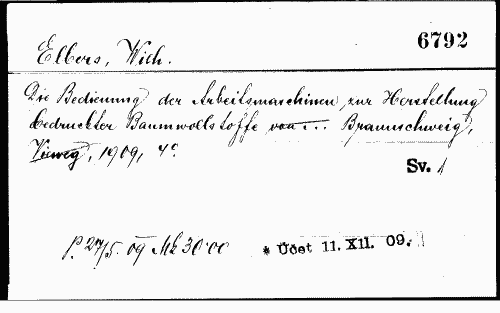 6792
Elbers, Wilh.
Die Bedienung der Arbeitsmaschinen zur Herstellung
bedruckter Baumwollstoffe von ... Braunschweig,
Vieweg, 1909, 4°.
Sv. 1
p. 27/5. 09 Mk 30·00 * Účet 11. XII. 09.